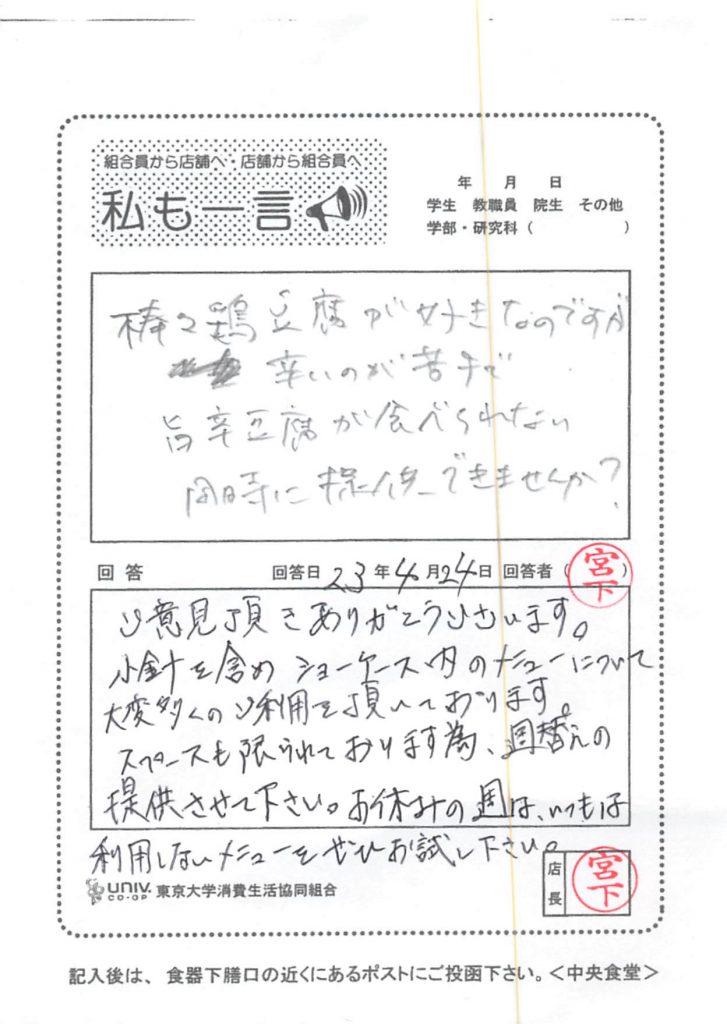 組合員から店舗へ・店舗から組合員へ
私も一言
年 月 日
学生 教職員 院生 その他
学部・研究科（ ）
棒々鶏豆腐が好きなのですが
辛いのが苦手で
旨辛豆腐が食べられない
同時に提供できませんか？
回答 回答日 23年4月24日 回答者（宮下）
ご意見頂きありがとうございます。
小鉢を含めショーケース内のメニューについて
大変多くのご利用を頂いております。
スペースも限られております為、週替えの
提供させて下さい。お休みの週は、いつもは
利用しないメニューをぜひお試し下さい。
UNIV. CO-OP 東京大学消費生活協同組合
店長 宮下
記入後は、食器下膳口の近くにあるポストにご投函下さい。＜中央食堂＞